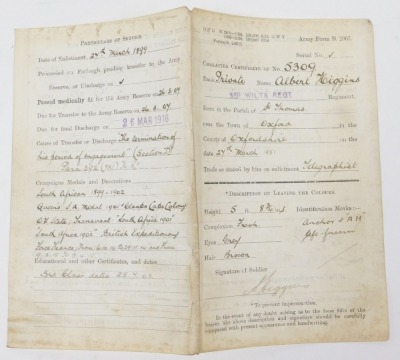 PARTICULARS OF SERVICE
Date of Enlistment 27th March 1899
Proceeded on Furlough pending transfer to the Army
Reserve, or Discharge on
Passed medically fit for the Army Reserve on 26.3.07
Due for Transfer to the Army Reserve on 26.3.07
Due for final Discharge on
26 MAR 1916
Cause of Transfer or Discharge The termination of
his period of engagement
Campaigns Medals and Decorations
South African 1899-1902
Queen's S.A. Medal 1901 Clasps Cape Colony
O.F. State Transvaal "South Africa 1901"
South Africa 1902" British Expeditionary
Force France
Educational and other Certificates, and dates
3rd Class
Army Form B. 2067.
Serial No.
CHARACTER CERTIFICATE OF No. 5309
Rank Private Name Albert Higgins
Regiment.
Born in the Parish of St Thomas
near the Town of Oxford in the
County of Oxfordshire on
the 27th March
Trade as stated by him on enlistment Telegraphist
*DESCRIPTION ON LEAVING THE COLOURS.
Height 5 8¾ Identification Marks:—
Complexion Fresh Anchor
Eyes Grey
Hair Brown
Signature of Soldier
A Higgins
*To prevent impersonation.
In the event of any doubt arising as to the bona fides of the
bearer, the above description and signature should be carefully
compared with present appearance and handwriting.